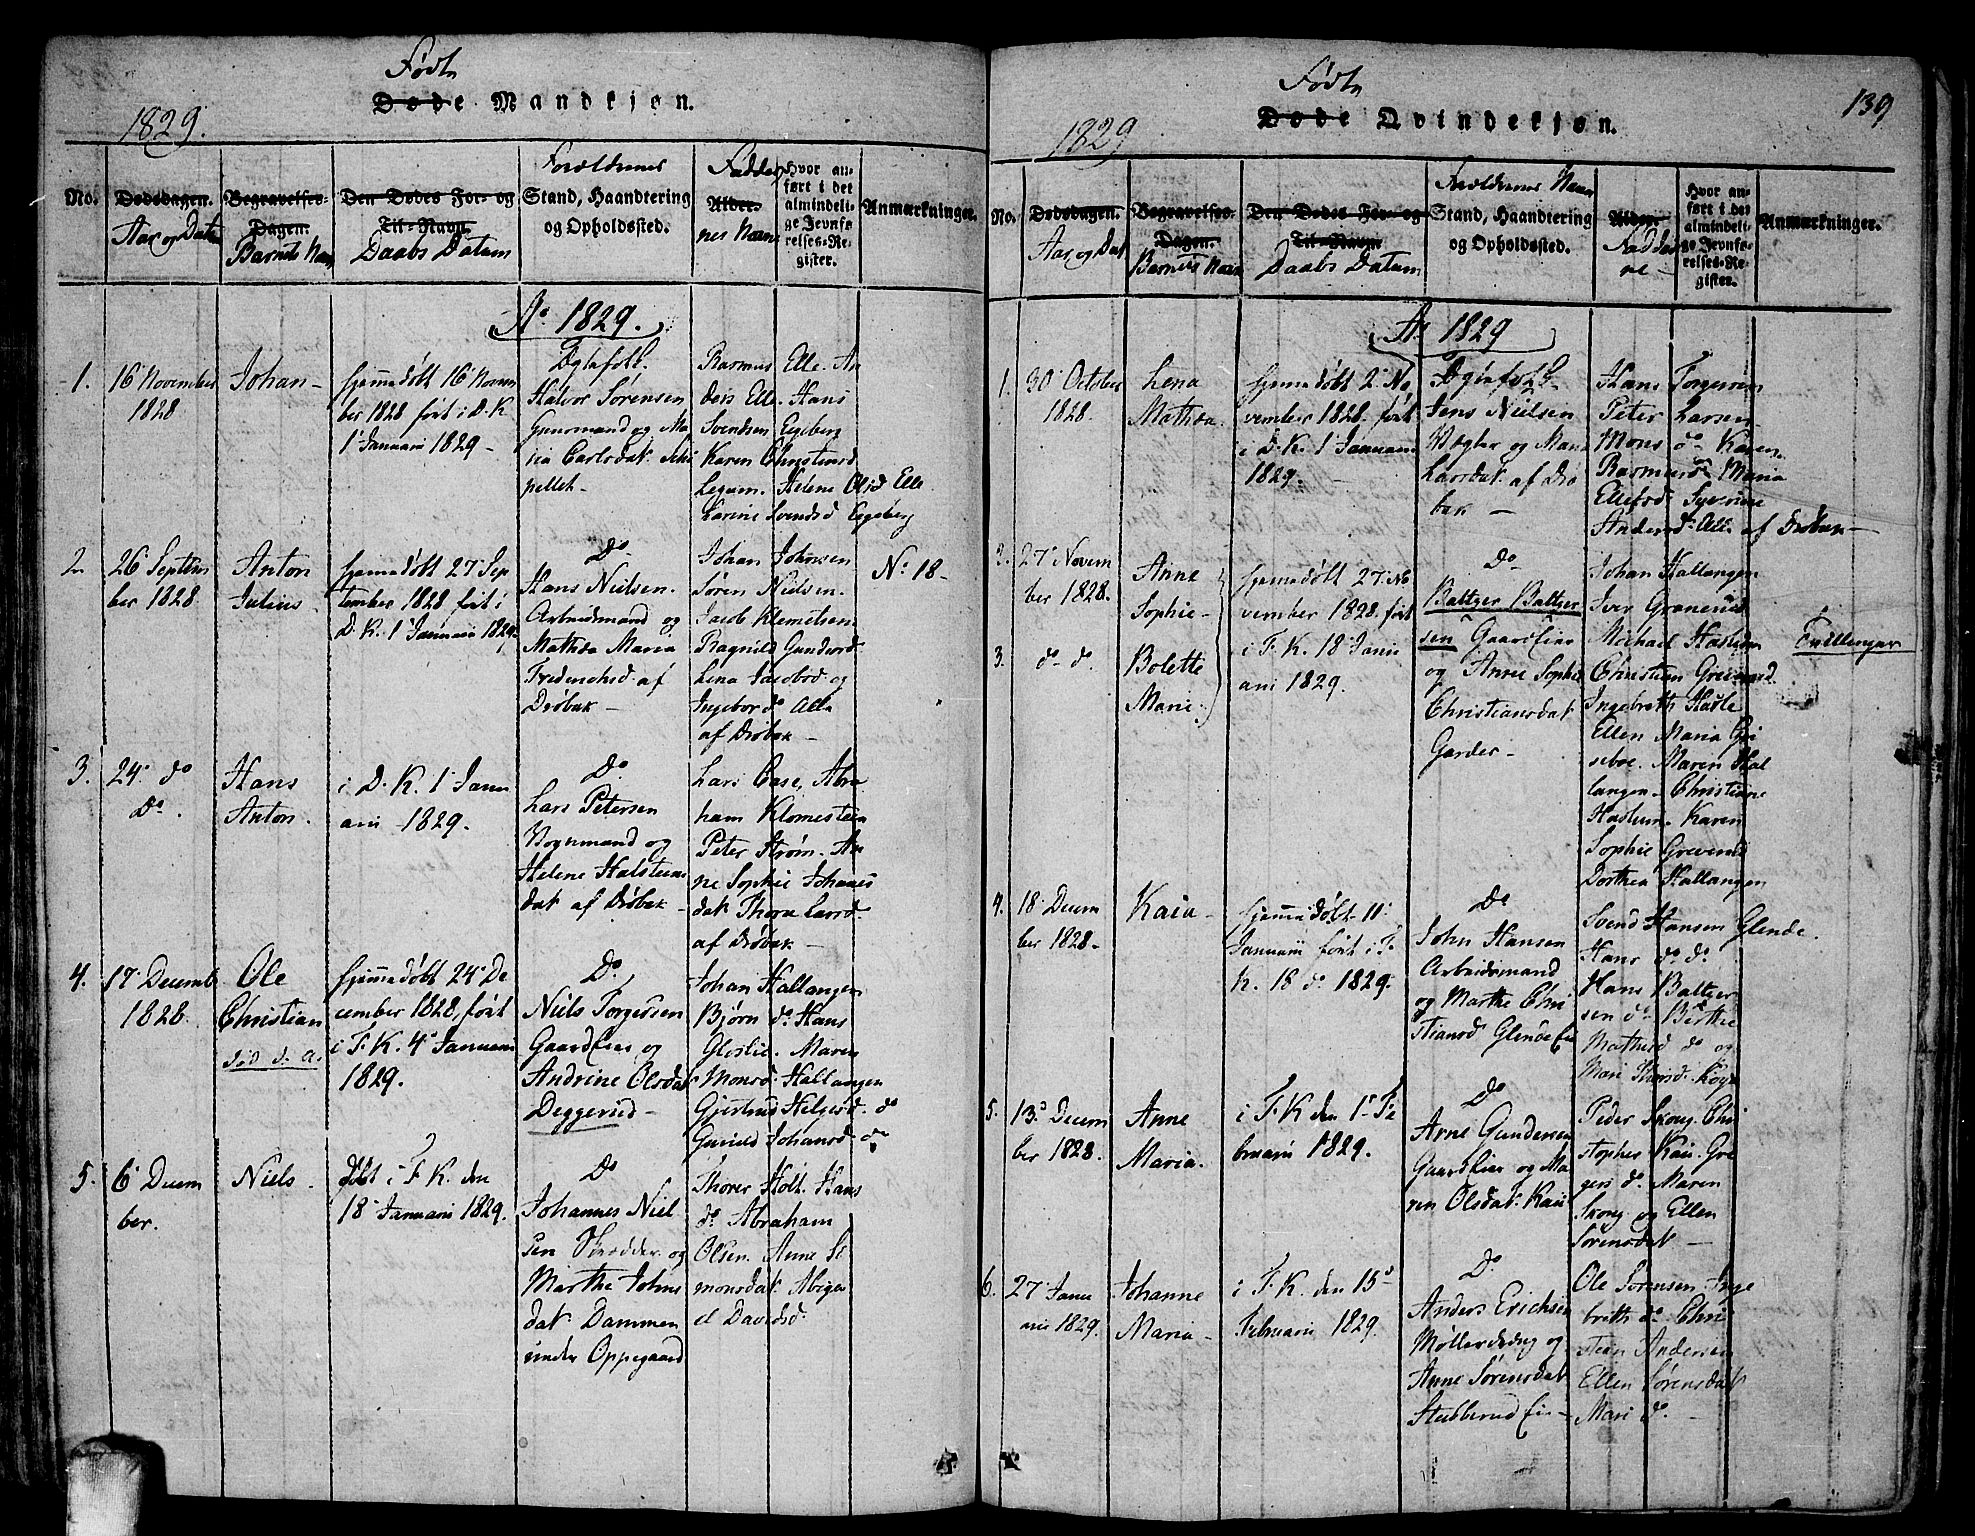 Fødte
Døde Mandkjøn.
1829.
No.
Dødsdagen.
Aar og Datum
Begravelses-
Dagen.
Barnets Navn
Den Dødes For- og
Til-Navn.
Daabs Datum
Forældrenes
Stand, Haandtering
og Opholdssted.
Fadder
Alder.
nes Navne
Hvor an-
ført i det
almindeli-
ge Jevnfø-
relses-Re-
gister.
Anmærkninger.
Ao 1829.
1.
16 November
1828
Johan-
hjemmedøbt 16 Novem
ber 1828 ført i D. K
1 Januari 1829-
Egtefolk.
Halvor Sørensen
Gaarmand og Ma
ria Carlsdat.
pellet-
Rasmus Elle. An
ders Elle. Hans
Svendsen Egeberg
Karen Christensd
Legum. Helene Olsd Elle
Karine Svendsd Egeberg
2
26 Septem
ber 1828
Anton
Julius.
hjemmedøbt 27 Sep
tember 1828 ført i
D. K. 1 Januari 1829
Do
Hans Nielsen.
Arbeidsmand og
Mathea Maria
Friderichsd. af
Drøbak-
Johan Johnsen
Søren Nielsen.
Jacob Klemetsen
Ragnild Gundersd
Lena Jacobsd og
Ingebor do Alle
af Drøbak-
No 18-
3.
24 do
Do.
Hans
Anton.
i D. K. 1 Janu
ari 1829.
Do
Lars Petersen
Vognmand og
Helene Halsteens
dat af Drøbak-
Lars Case, Abra
ham Klomesteen
Peter Strøm. An
ne Sophie Johanes
dat Thora Larsd-
af Drøbak-
4.
17 Decemb
1828.
Ole
Christian
død d. A.
hjemmedøbt 24 De
cember 1828, ført
i F. K. 4 Januari
1829.
Do.
Niels Torgersen
Gaardeier og
Andrine Olsdat
Deggerud-
Johan Hallangen
Bjørn do Hans
Gloslie. Maren
Monsd. Hallangen
Gjertrud Helgesd. do
Gunild Johansd. do
5.
6 Decem
ber.
Niels.
døbt i F. K. den
18 Januari 1829.
Do
Johannes Niel
sen Skrædder og
Marthe Johns
dat. Dammen
under Oppegaard
Thorer Holt. Hans
do Abraham
Olsen. Anne Si
monsdat Abiga
el Davidsd.
Fødte
Døde Qvindekjøn.
139
1829
No.
Dødsdagen.
Aar og Dat
Begravelses-
Dagen.
Barnets Navn
Den Dødes For- og
Til-Navn
Daabs Datum
Forældrenes Navn
Stand, Haandtering
og Opholdssted.
Alder.
Fadder
ne-
Hvor an-
ført i det
almindeli-
ge Jevnfø-
relses-Re-
gister.
Anmærkninger.
Ao 1829
1.
30 October
1828.
Lena
Mathea.
hjemmedøbt 2 No
vember 1828. ført
i D. K. 1 Januari
1829.
Egtefolk-
Jens Nielsen
Vægter og Maria
Larsdat. af Drø
bak-
Hans Torgersen
Peter Larsen.
Mons do Karen
Rasmusd Maria
Ellefsd. Syverine
Andersd. Alle af Drøbak-
2.
27 Novem
ber 1828.
Anne
Sophie-
hjemmedøbt 27 No
vember 1828. ført
i F. K. 18 Janu
ari 1829.
Do-
Baltzer Baltzer
sen Gaardeier
og Anne Sophie
Christiansdat
Garder-
Johan Hallangen
Iver Granerud
Michael Haslum
Christian Greverud.
Ingebreth Hasle
Ellen Maria Gri
seboe. Maren Hal
langen. Christiane
Haslum. Karen
Sophie Greverud
Dorthea Hallangen
3.
do do.
Bolette
Marie
Tvillinger
4.
18 Decem
ber 1828.
Kaia-
hjemmedøbt 11
Januari ført i F.
K. 18 do 1829.
Do
John Hansen
Arbeidsmand
og Marthe Chri
stiansd Glende eie
Svend Hansen Glende.
Hans do do
Hans Baltzer
sen do Berthe
Mathisd do og
Mari
5.
13 Decem
ber 1828.
Anne
Maria.
i F. K den 1 Fe
bruari 1829.
Do
Arne Gundersen
Gaardeier og Ma
ren Olsdat. Kaie
Peder Skong. Chri
stopher Kaie. Gre
gers do Maren
Skong og Ellen
Sørensdat-
6.
27 Janu
ari 1829.
Johanne
Maria-
i F. K. den 15
Februari 1829.
Do.
Anders Erichsen
Møllerdreng og
Anne Sørensdat
Stubberud Eie-
Ole Sørensen Inge
breth do Chri
stian Andersen
Ellen Sørensdat
Mari do-